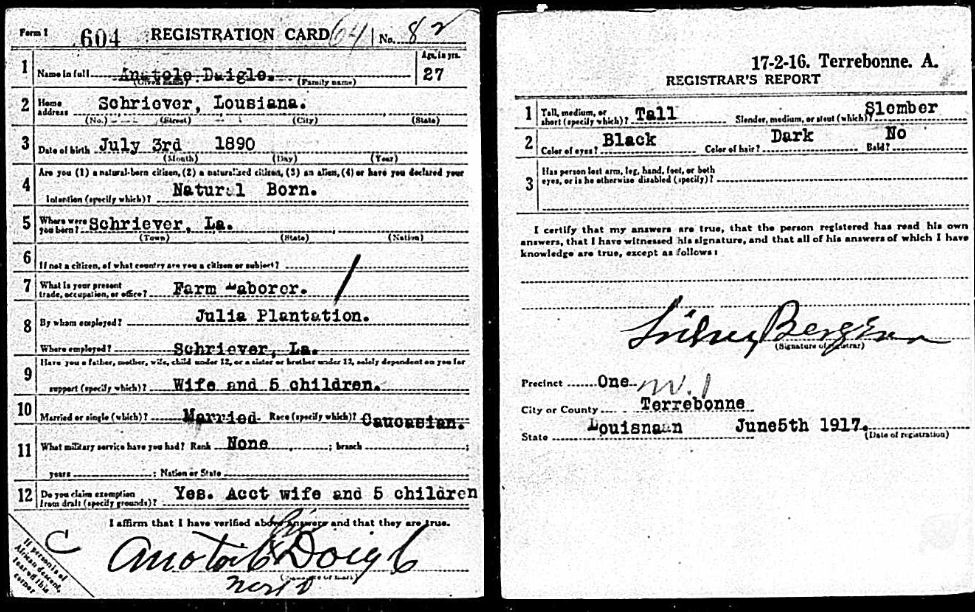 Form 1 604 REGISTRATION CARD 64 No. 82
1 Name in full Anatole Daigle. Age, in yrs. 27
(Given name) (Family name)
2 Home address Schriever, Lousiana.
(No.) (Street) (City) (State)
3 Date of birth July 3rd 1890
(Month) (Day) (Year)
4 Are you (1) a natural-born citizen, (2) a naturalized citizen, (3) an alien, (4) or have you declared your
intention (specify which)? Natural Born.
5 Where were you born? Schriever, La.
(Town) (State) (Nation)
6 If not a citizen, of what country are you a citizen or subject?
7 What is your present trade, occupation, or office? Farm Laborer.
8 By whom employed? Julia Plantation.
Where employed? Schriever, La.
9 Have you a father, mother, wife, child under 12, or a sister or brother under 12, solely dependent on you for
support (specify which)? Wife and 5 children.
10 Married or single (which)? Married Race (specify which)? Caucasian.
11 What military service have you had? Rank None ; branch ;
years ; Nation or State
12 Do you claim exemption from draft (specify grounds)? Yes. Acct wife and 5 children
I affirm that I have verified above answers and that they are true.
his
Daigle
If person is of
African descent,
tear off this
corner
17-2-16. Terrebonne. A.
REGISTRAR'S REPORT
1 Tall, medium, or short (specify which)? Tall Slender, medium, or stout (which)? Slember
2 Color of eyes? Black Color of hair? Dark Bald? No
3 Has person lost arm, leg, hand, foot, or both
eyes, or is he otherwise disabled (specify)?
I certify that my answers are true, that the person registered has read his own
answers, that I have witnessed his signature, and that all of his answers of which I have
knowledge are true, except as follows:
(Signature of registrar)
Precinct One
City or County Terrebonne
State Louisnaan June5th 1917.
(Date of registration)